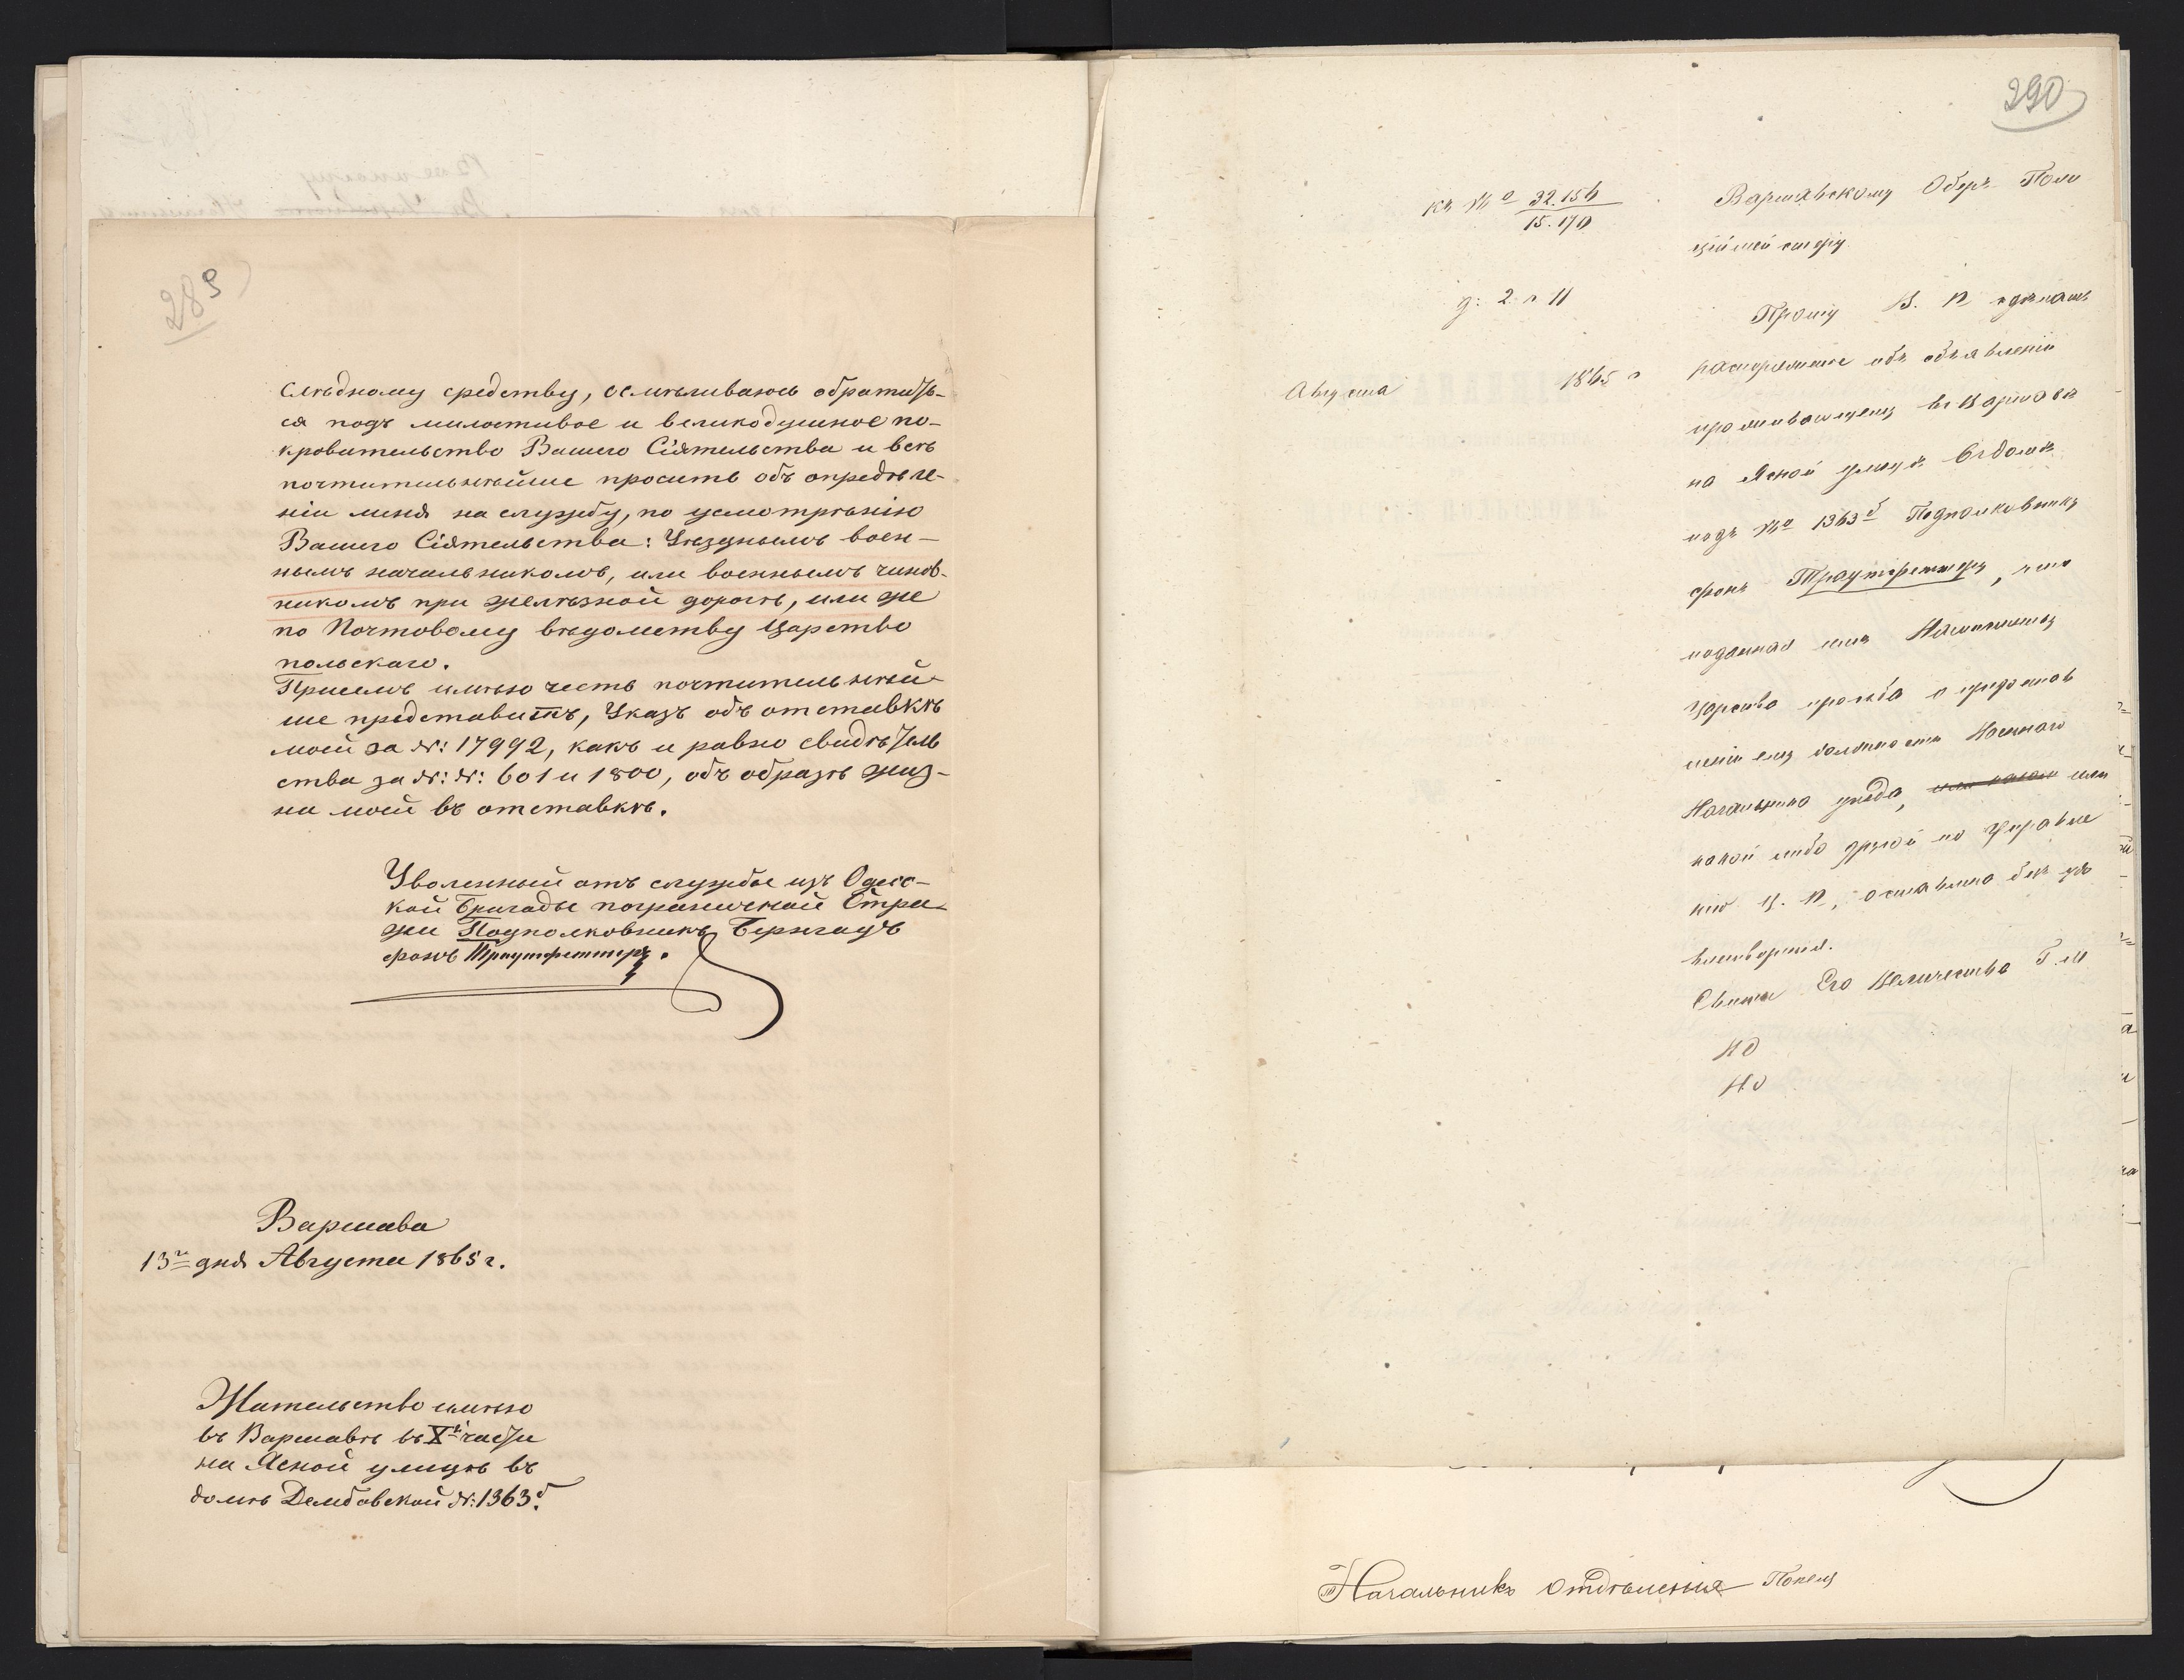 289
слѣдному средству, осмѣливаюсь обратить-
ся подъ милостивое и великодушное по-
кровительство Вашего Сіятельства и всѣ
почтительнѣйше просить объ опредѣле-
ніи меня на службу, по усмотрѣнію
Вашего Сіятельства: Уѣзднымъ воен-
нымъ начальникомъ, или военнымъ чинов-
никомъ при желѣзной дорогѣ, или же
по Почтовому вѣдомству Царство
польскаго.
Присемъ имѣю честь почтительнѣй-
ше представить, Указъ объ отставкѣ
моей за №: 17992, какъ и равно свидѣтель
ства за №: №: 601 и 1800, объ образѣ жиз-
ни моей въ отставкѣ.
Уволенный отъ службы изъ Одесс-
кой Бригады пограничной Стра-
жи Подполковникъ Бернгардъ
фонъ Траутфеттеръ.
Варшава
13го дня Августа 1865 г.
Жительство имѣю
въ Варшавѣ въ Xй части
на Ясной улицѣ въ
домѣ Дембовской №: 1363б.
290
къ № 32.156
15.170
д: 2 л 11
Августа 1865 г
Варшавскому Оберъ Поли
ційместеру
Прошу В. П. сдѣлать
распоряженіе объ объявленіи
проживающему въ Варшавѣ
на Ясной улицѣ въ домѣ
подъ № 1363б Подполковнику
фонъ Траутфеттеру, что
поданная имъ Намѣстнику
Царства просьба о предоставле
ніи ему должности Военнаго
Начальника уѣзда, или
какой либо другой по Управле
нію Ц. П., оставлена безъ удо
влетворенія.
Свиты Его Величества Г. М
НО
НО
Начальникъ Отдѣленія